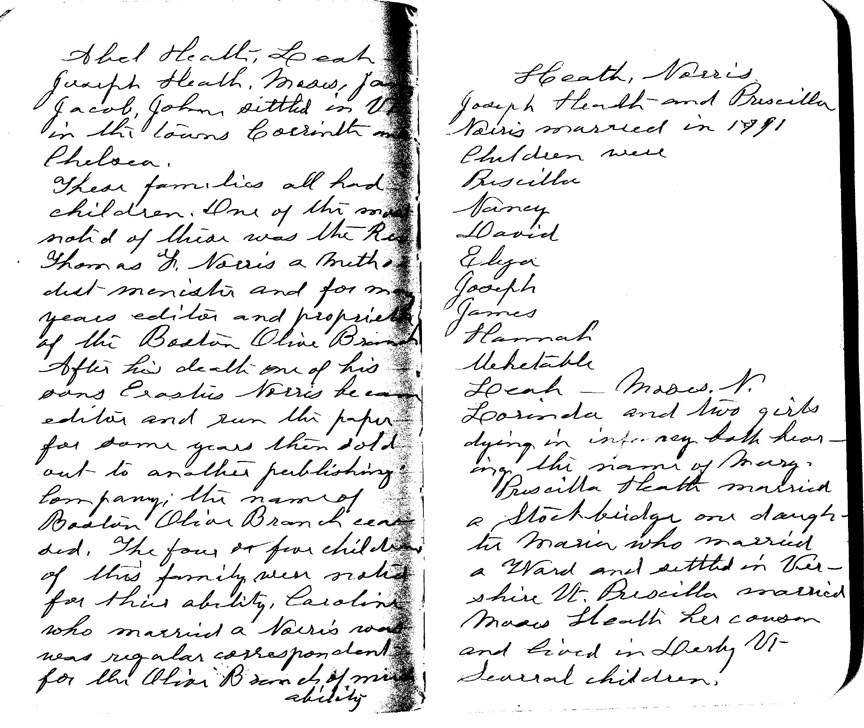 Abel Heath, Leah
Joseph Heath, Moses,
Jacob, John, sittled in Vt
in the towns Corrinth
Chelsea.
These families all had
children. One of the
notid of these was the Rev
Thomas F. Norris a Metho
dist menister and for many
years editor and proprietor
of the Boston Olive Branch
After his death one of his
sons Erastus Norris became
editor and run the paper
for some years then sold
out to another publishing
Company; the name of
Boston Olive Branch cea-
sed. The four or five children
of this family were notid
for their ability. Caroline
who married a Norris was
was regular correspondent
for the Olive Branch of much
ability
Heath, Norris
Joseph Heath and Priscilla
Norris married in
Children were
Priscilla
Nancy
David
Eliza
Joseph
James
Hannah
Mehetable
Leah — Moses. N.
Lorinda and two girls
dying in infancy both bear-
ing the name of Mary.
Priscilla Heath married
a Stockbridge one daugh-
ter Maria who married
a Ward and settled in Ver-
shire Vt. Priscilla married
Moses Heath her couson
and lived in Derby Vt-
Several children.